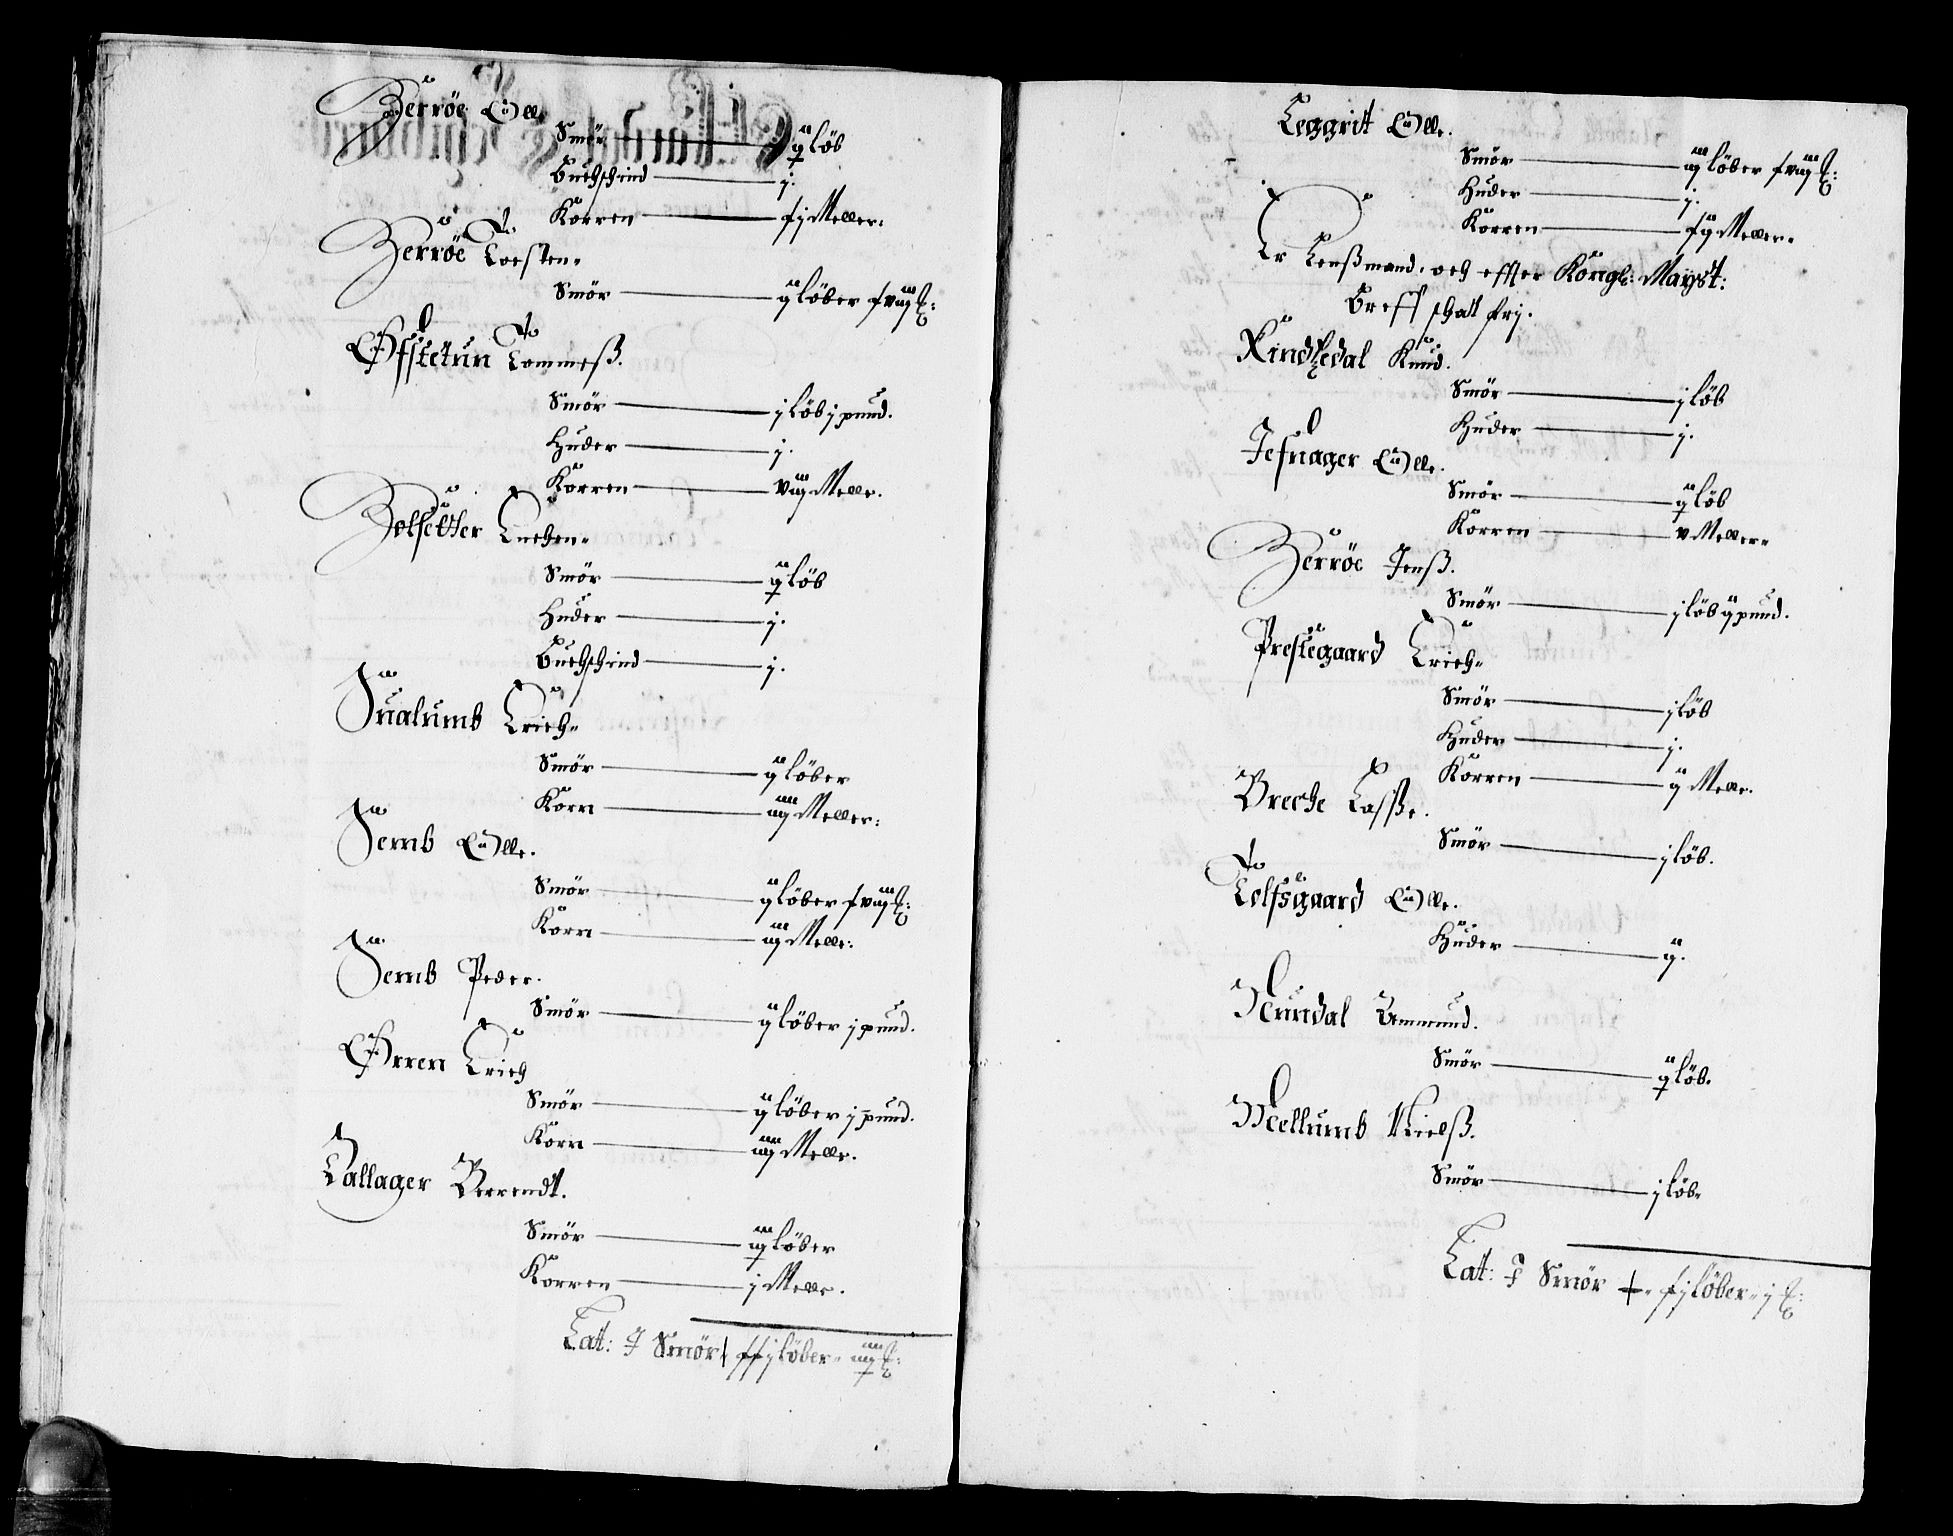 Berröe Olle
Smör — ij löb
Buchschind — j.
Korren — fj Meller:
Berröe Torsten
Smör — ij löber f viij ℔:
Offstetun Tommeß.
Smör — j löb j pund.
Huder — j.
Korren — viij Melle.
Bolsetter Knechen
Smör — ij löb
Huder — j.
Buchschind — j.
Jualumb Erich
Smör — ij löber
Korn — iiij Meller:
Jemb Olle.
Smör — ij löber f viij ℔:
Korn — iij Melle:
Jemb Peder.
Smör — ij löber j pund.
Orren Erich
Smör — ij löber j pund.
Korn — iiij Melle.
Lallager Berrendt.
Smör — iij löber
Korren — j Melle.
Lat: J Smör ffj löber iiij ℔:
Leggrit Olle.
Smör — iij löber f viij ℔:
Huder — j.
Korren — fij Meller
Er Lenßmand, och effter Kongl: Mayst:
Breff schat frj.
Rindtzedal Knud.
Smör — j löb
Huder — j.
Jefnager Olle.
Smör — ij löb
Korren — v Meller
Berröe Jenß.
Smör — j löb ij pund.
Prestegaard Erich
Smör — j löb
Huder — j.
Korren — ij Melle.
Breche Lasße.
Smör — j löb.
Tolfsgaard Olle.
Huder — ij.
Nundal Ammund.
Smör — ij löb.
Mellumb Nielß.
Smör — j löb
Lat: J Smör fj löber j ℔: